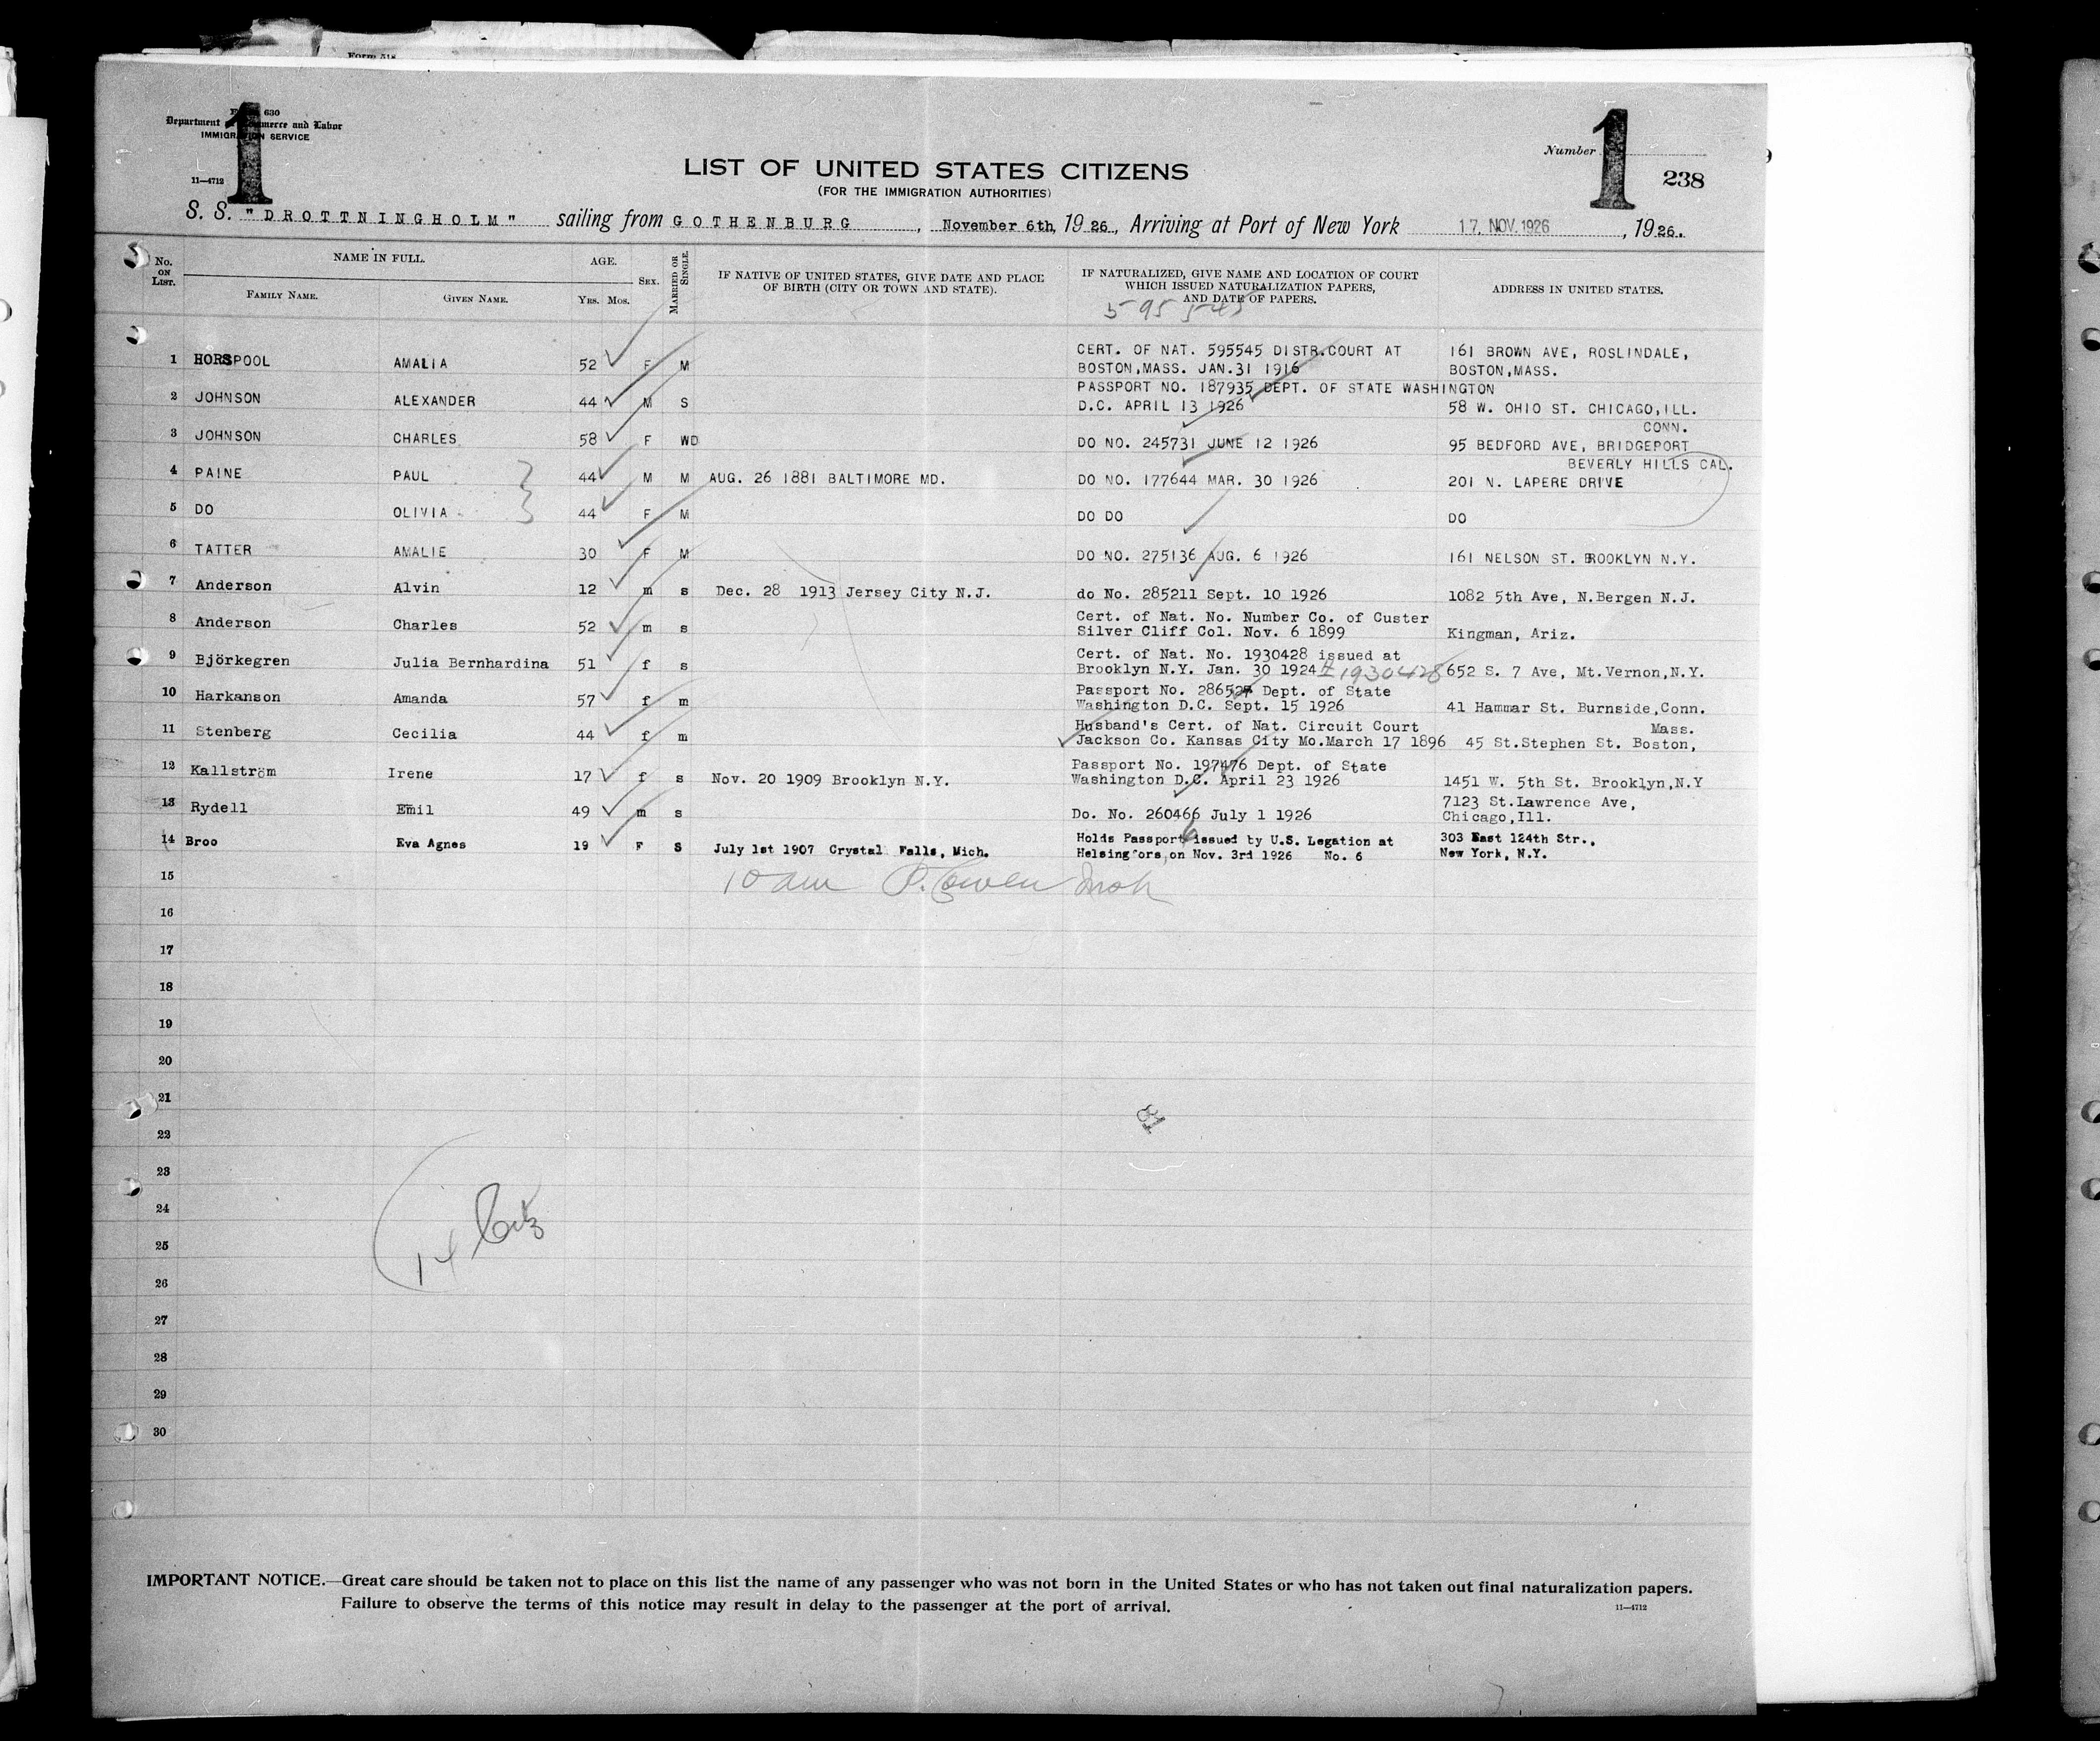 Form 518
630
Department Commerce and Labor
IMMIGRATION SERVICE
11—4712
1
1
Number
238
LIST OF UNITED STATES CITIZENS
(FOR THE IMMIGRATION AUTHORITIES)
S. S. "DROTTNINGHOLM" sailing from GOTHENBURG, November 6th, 1926, Arriving at Port of New York 17. NOV. 1926, 1926.
No. ON LIST. NAME IN FULL. AGE. SEX. MARRIED OR SINGLE. IF NATIVE OF UNITED STATES, GIVE DATE AND PLACE OF BIRTH (CITY OR TOWN AND STATE). IF NATURALIZED, GIVE NAME AND LOCATION OF COURT WHICH ISSUED NATURALIZATION PAPERS, AND DATE OF PAPERS. ADDRESS IN UNITED STATES.
FAMILY NAME. GIVEN NAME. YRS. MOS.
595545
1 HORSPOOL AMALIA 52 F M CERT. OF NAT. 595545 DISTR.COURT AT BOSTON,MASS. JAN.31 1916 161 BROWN AVE, ROSLINDALE, BOSTON,MASS.
2 JOHNSON ALEXANDER 44 M S PASSPORT NO. 187935 DEPT. OF STATE WASHINGTON D.C. APRIL 13 1926 58 W. OHIO ST. CHICAGO,ILL.
3 JOHNSON CHARLES 58 F WD DO NO. 245731 JUNE 12 1926 95 BEDFORD AVE, BRIDGEPORT CONN.
4 PAINE PAUL 44 M M AUG. 26 1881 BALTIMORE MD. DO NO. 177644 MAR. 30 1926 201 N. LAPERE DRIVE BEVERLY HILLS CAL.
5 DO OLIVIA 44 F M DO DO DO
6 TATTER AMALIE 30 F M DO NO. 275136 AUG. 6 1926 161 NELSON ST. BROOKLYN N.Y.
7 Anderson Alvin 12 m s Dec. 28 1913 Jersey City N.J. do No. 285211 Sept. 10 1926 1082 5th Ave, N.Bergen N.J.
8 Anderson Charles 52 m s Cert. of Nat. No. Number Co. of Custer Silver Cliff Col. Nov. 6 1899 Kingman, Ariz.
9 Björkegren Julia Bernhardina 51 f s Cert. of Nat. No. 1930428 issued at Brooklyn N.Y. Jan. 30 1924 # 1930428 652 S. 7 Ave, Mt.Vernon,N.Y.
10 Harkanson Amanda 57 f m Passport No. 286527 Dept. of State Washington D.C. Sept. 15 1926 41 Hammar St. Burnside,Conn.
11 Stenberg Cecilia 44 f m Husband's Cert. of Nat. Circuit Court Jackson Co. Kansas City Mo.March 17 1896 45 St.Stephen St. Boston, Mass.
12 Kallström Irene 17 f s Nov. 20 1909 Brooklyn N.Y. Passport No. 197476 Dept. of State Washington D.C. April 23 1926 1451 W. 5th St. Brooklyn,N.Y
13 Rydell Emil 49 m s Do. No. 260466 July 1 1926 7123 St.Lawrence Ave, Chicago,Ill.
14 Broo Eva Agnes 19 F S July 1st 1907 Crystal Falls, Mich. Holds Passport issued by U.S. Legation at Helsingfors,on Nov. 3rd 1926 No. 6 303 East 124th Str., New York, N.Y.
15 10 am
16
17
18
19
20
21
22
23
24
25
26
27
28
29
30
81
14 Citz
IMPORTANT NOTICE.—Great care should be taken not to place on this list the name of any passenger who was not born in the United States or who has not taken out final naturalization papers.
Failure to observe the terms of this notice may result in delay to the passenger at the port of arrival.
11—4712